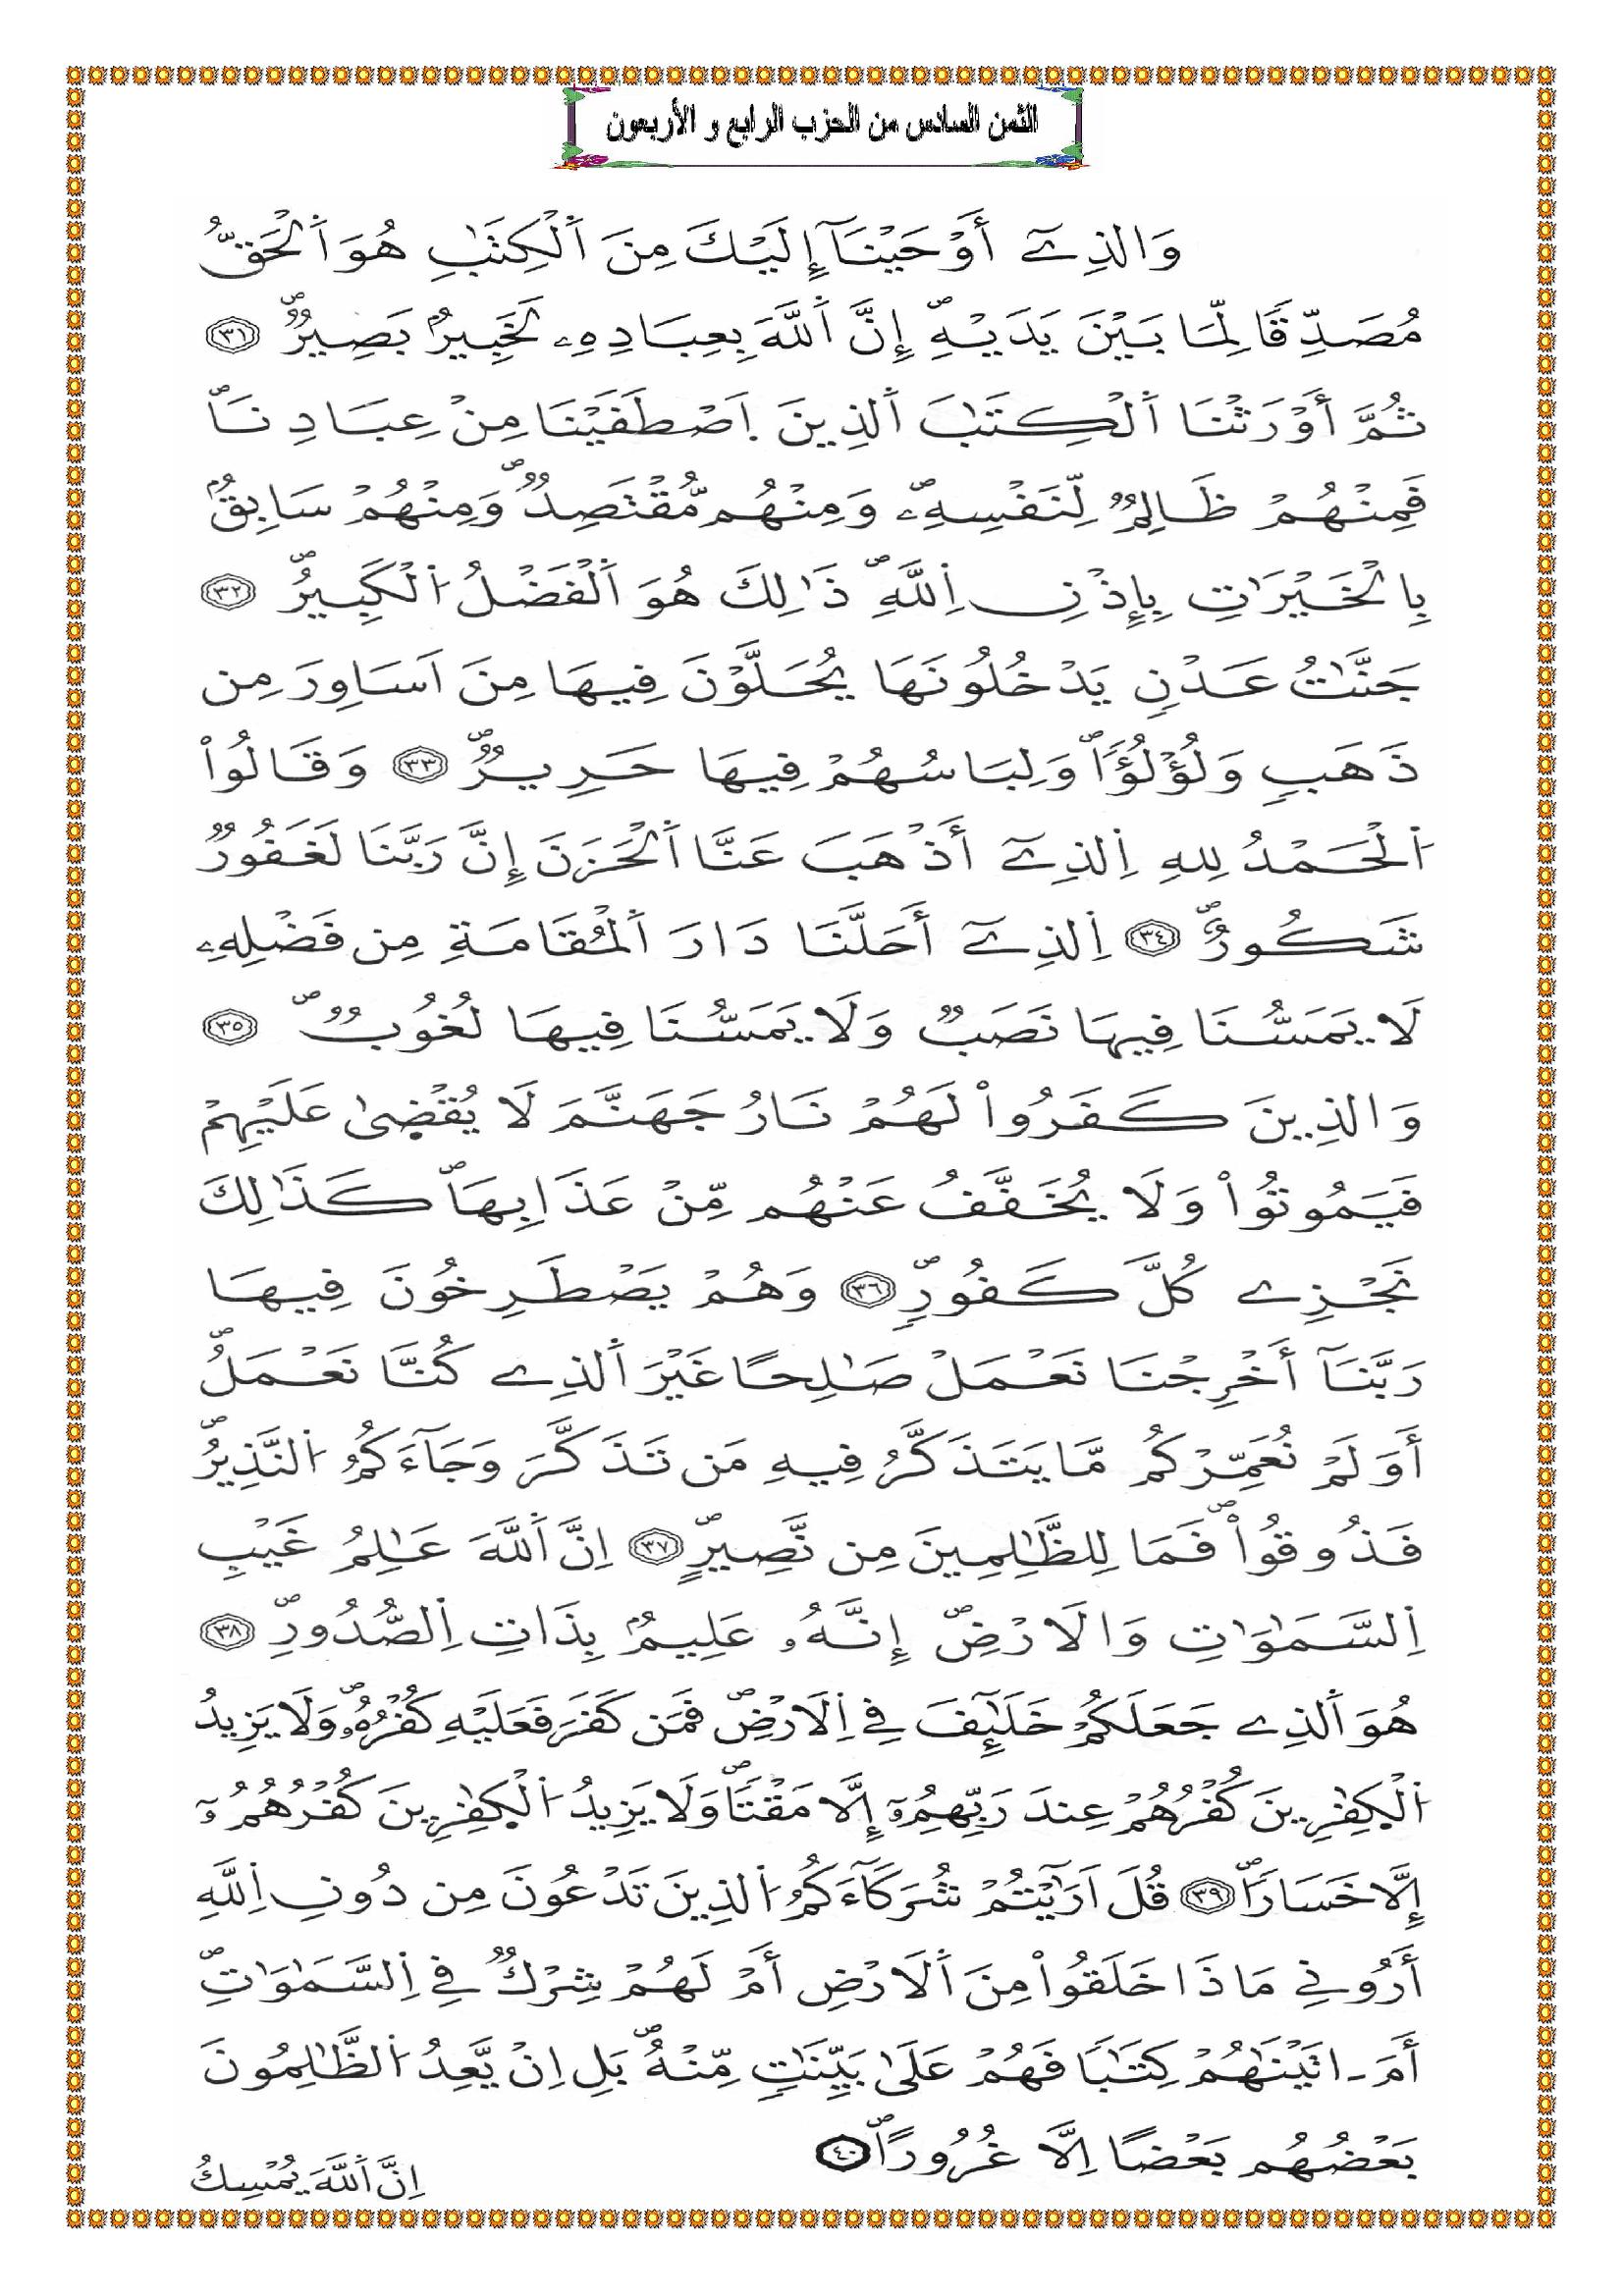 الثمن السادس من الحزب الرابع و الأربعون
وَالذِےٓ أَوْحَيْنَآ إِلَيْكَ مِنَ اَ۬لْكِتَٰبِ هُوَ اَ۬لْحَقُّ
مُصَدِّقاٗ لِّمَا بَيْنَ يَدَيْهِۖ إِنَّ اَ۬للَّهَ بِعِبَادِهِۦ لَخَبِيرُۢ بَصِيرٞۖ ٣١
ثُمَّ أَوْرَثْنَا اَ۬لْكِتَٰبَ اَ۬لذِينَ اَ۪صْطَفَيْنَا مِنْ عِبَادِنَاۖ
فَمِنْهُمْ ظَالِمٞ لِّنَفْسِهِۦۖ وَمِنْهُم مُّقْتَصِدٞۖ وَمِنْهُمْ سَابِقُۢ
بِالْخَيْرَٰتِ بِإِذْنِ اِ۬للَّهِۖ ذَٰلِكَ هُوَ اَ۬لْفَضْلُ اُ۬لْكَبِيرُۖ ٣٢
جَنَّٰتُ عَدْنٖ يَدْخُلُونَهَا يُحَلَّوْنَ فِيهَا مِنَ اَسَاوِرَ مِن
ذَهَبٖ وَلُؤْلُؤاٗۖ وَلِبَاسُهُمْ فِيهَا حَرِيرٞۖ ٣٣ وَقَالُواْ
اُ۬لْحَمْدُ لِلهِ اِ۬لذِےٓ أَذْهَبَ عَنَّا اَ۬لْحَزَنَ إِنَّ رَبَّنَا لَغَفُورٞ
شَكُورٌۖ ٣٤ اِ۬لذِےٓ أَحَلَّنَا دَارَ اَ۬لْمُقَامَةِ مِن فَضْلِهِۦ
لَا يَمَسُّنَا فِيهَا نَصَبٞ وَلَا يَمَسُّنَا فِيهَا لُغُوبٞۖ ٣٥
وَالذِينَ كَفَرُواْ لَهُمْ نَارُ جَهَنَّمَ لَا يُقْضَىٰ عَلَيْهِمْ
فَيَمُوتُواْ وَلَا يُخَفَّفُ عَنْهُم مِّنْ عَذَابِهَاۖ كَذَٰلِكَ
نَجْزِے كُلَّ كَفُورٖۖ ٣٦ وَهُمْ يَصْطَرِخُونَ فِيهَا
رَبَّنَآ أَخْرِجْنَا نَعْمَلْ صَٰلِحاً غَيْرَ اَ۬لذِے كُنَّا نَعْمَلُۖ
أَوَلَمْ نُعَمِّرْكُم مَّا يَتَذَكَّرُ فِيهِ مَن تَذَكَّرَ وَجَآءَكُمُ اُ۬لنَّذِيرُۖ
فَذُوقُواْۖ فَمَا لِلظَّٰلِمِينَ مِن نَّصِيرٍۖ ٣٧ اِنَّ اَ۬للَّهَ عَٰلِمُ غَيْبِ
اِ۬لسَّمَٰوَٰتِ وَالَارْضِۖ إِنَّهُۥ عَلِيمُۢ بِذَاتِ اِ۬لصُّدُورِۖ ٣٨
هُوَ اَ۬لذِے جَعَلَكُمْ خَلَٰٓئِفَ فِے اِ۬لَارْضِۖ فَمَن كَفَرَ فَعَلَيْهِ كُفْرُهُۥۖ وَلَا يَزِيدُ
اُ۬لْكَٰفِرِينَ كُفْرُهُمْ عِندَ رَبِّهِمُۥٓ إِلَّا مَقْتاٗۖ وَلَا يَزِيدُ اُ۬لْكَٰفِرِينَ كُفْرُهُمُۥٓ
إِلَّا خَسَاراٗۖ ٣٩ قُلَ اَرَٰٓيْتُمْ شُرَكَآءَكُمُ اُ۬لذِينَ تَدْعُونَ مِن دُونِ اِ۬للَّهِ
أَرُونِے مَاذَا خَلَقُواْ مِنَ اَ۬لَارْضِ أَمْ لَهُمْ شِرْكٞ فِے اِ۬لسَّمَٰوَٰتِۖ
أَمَ اٰتَيْنَٰهُمْ كِتَٰباٗ فَهُمْ عَلَىٰ بَيِّنَٰتٖ مِّنْهُۖ بَلِ اِنْ يَّعِدُ اُ۬لظَّٰلِمُونَ
بَعْضُهُم بَعْضاً اِلَّا غُرُوراًۖ ٤٠
اِنَّ اَ۬للَّهَ يُمْسِكُ